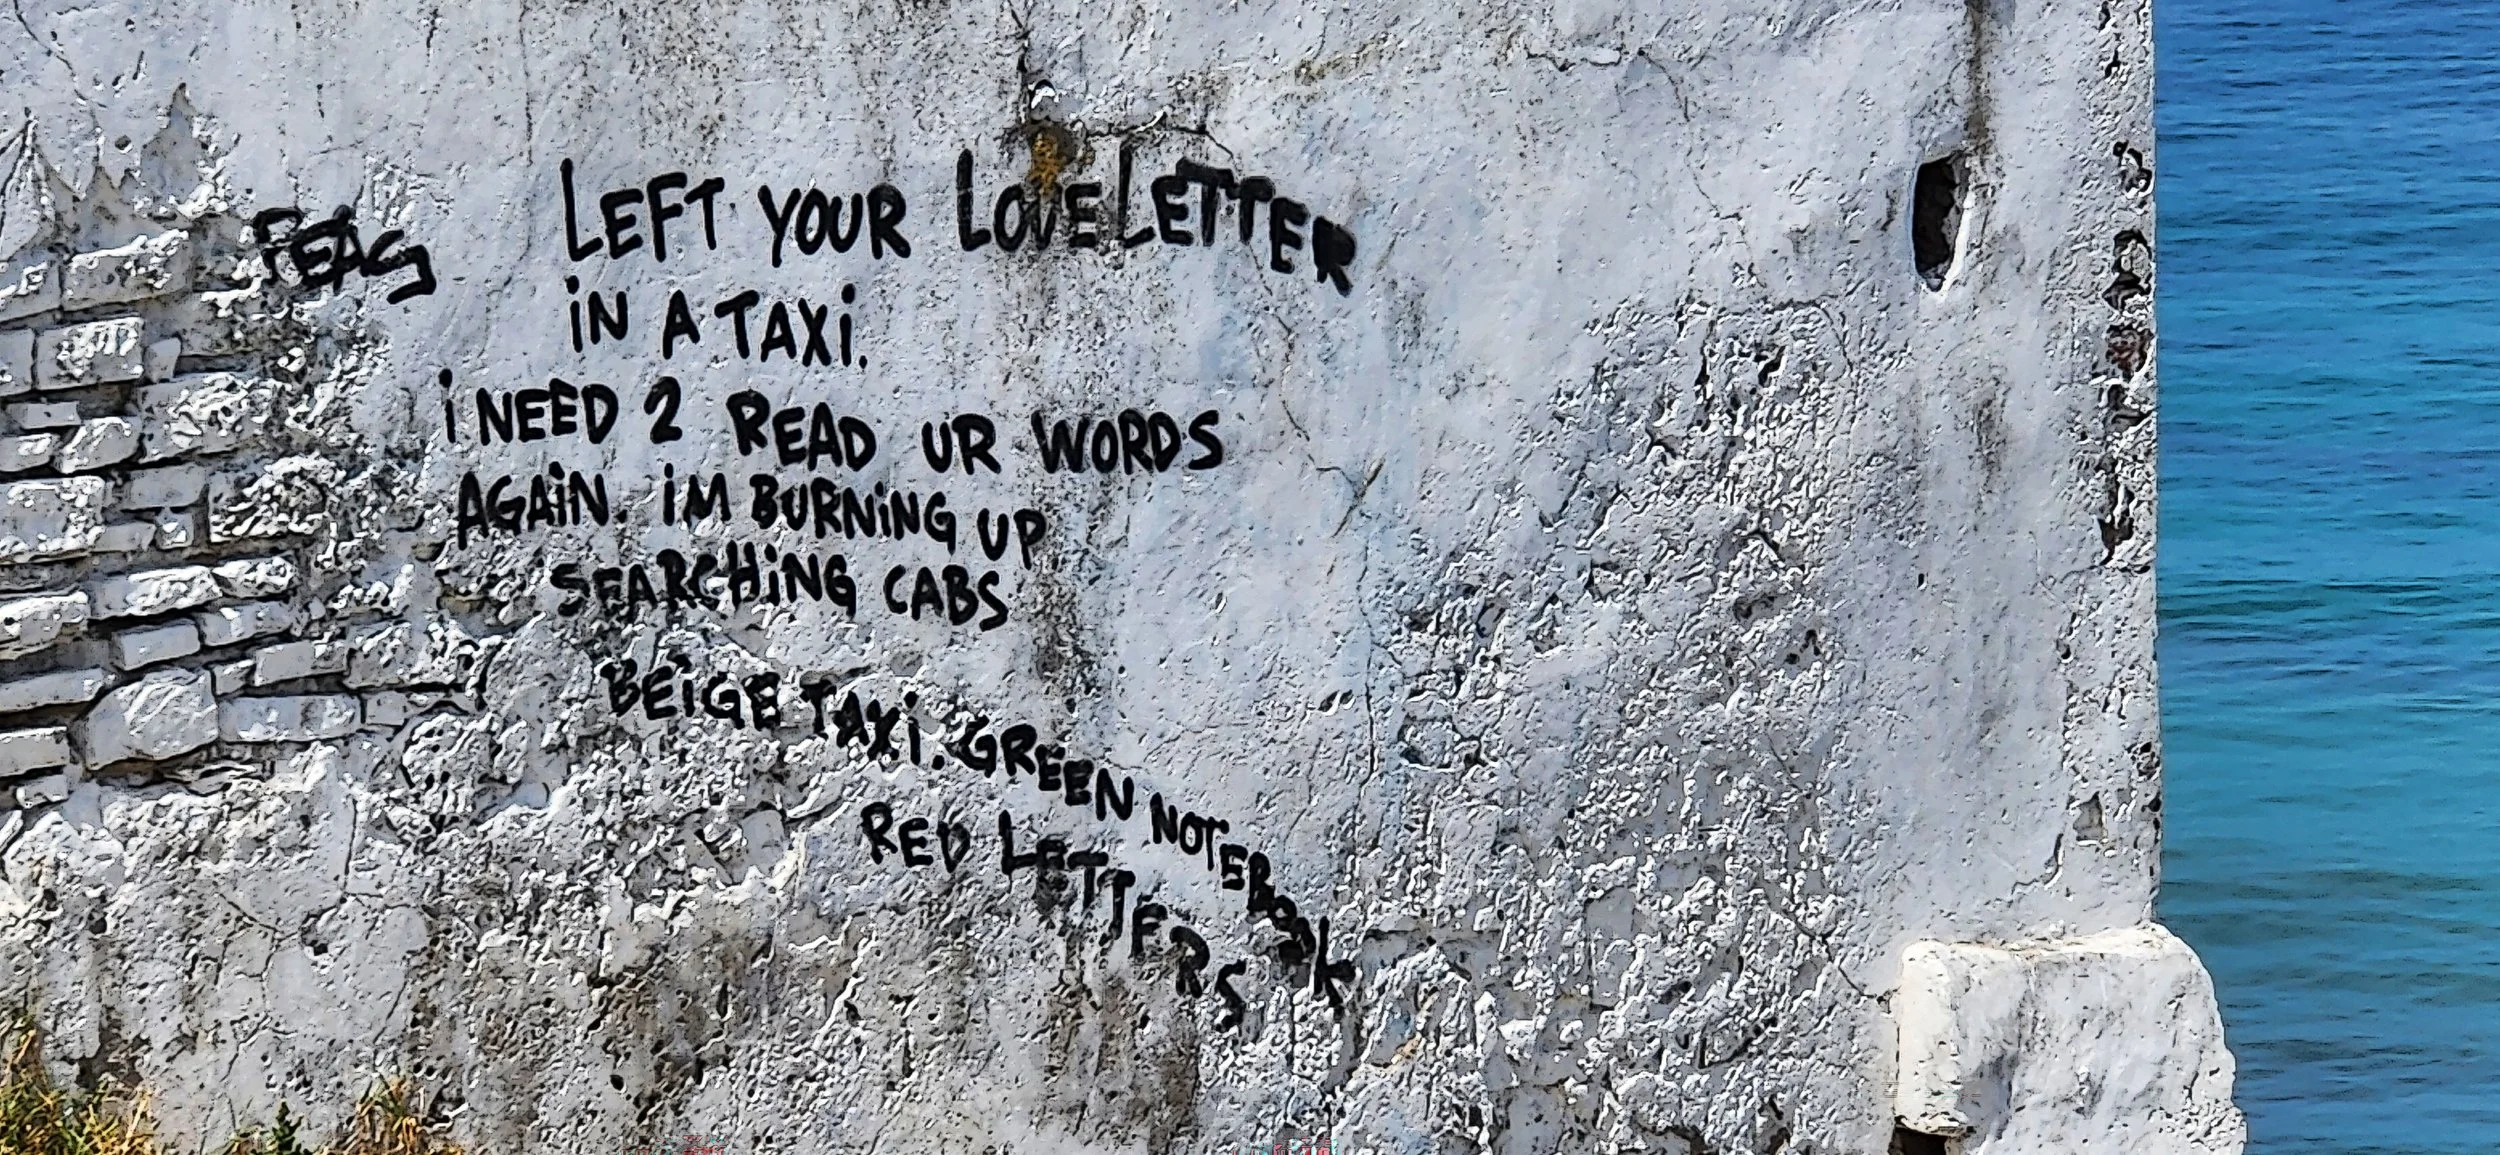 LEFT YOUR LOVE LETTER
iN A TAXi.
i NEED 2 READ UR WORDS
AGAiN. iM BURNiNG UP
SEARCHiNG CABS
BEiGE TAXi. GREEN NOTEBOOK
RED LETTERS